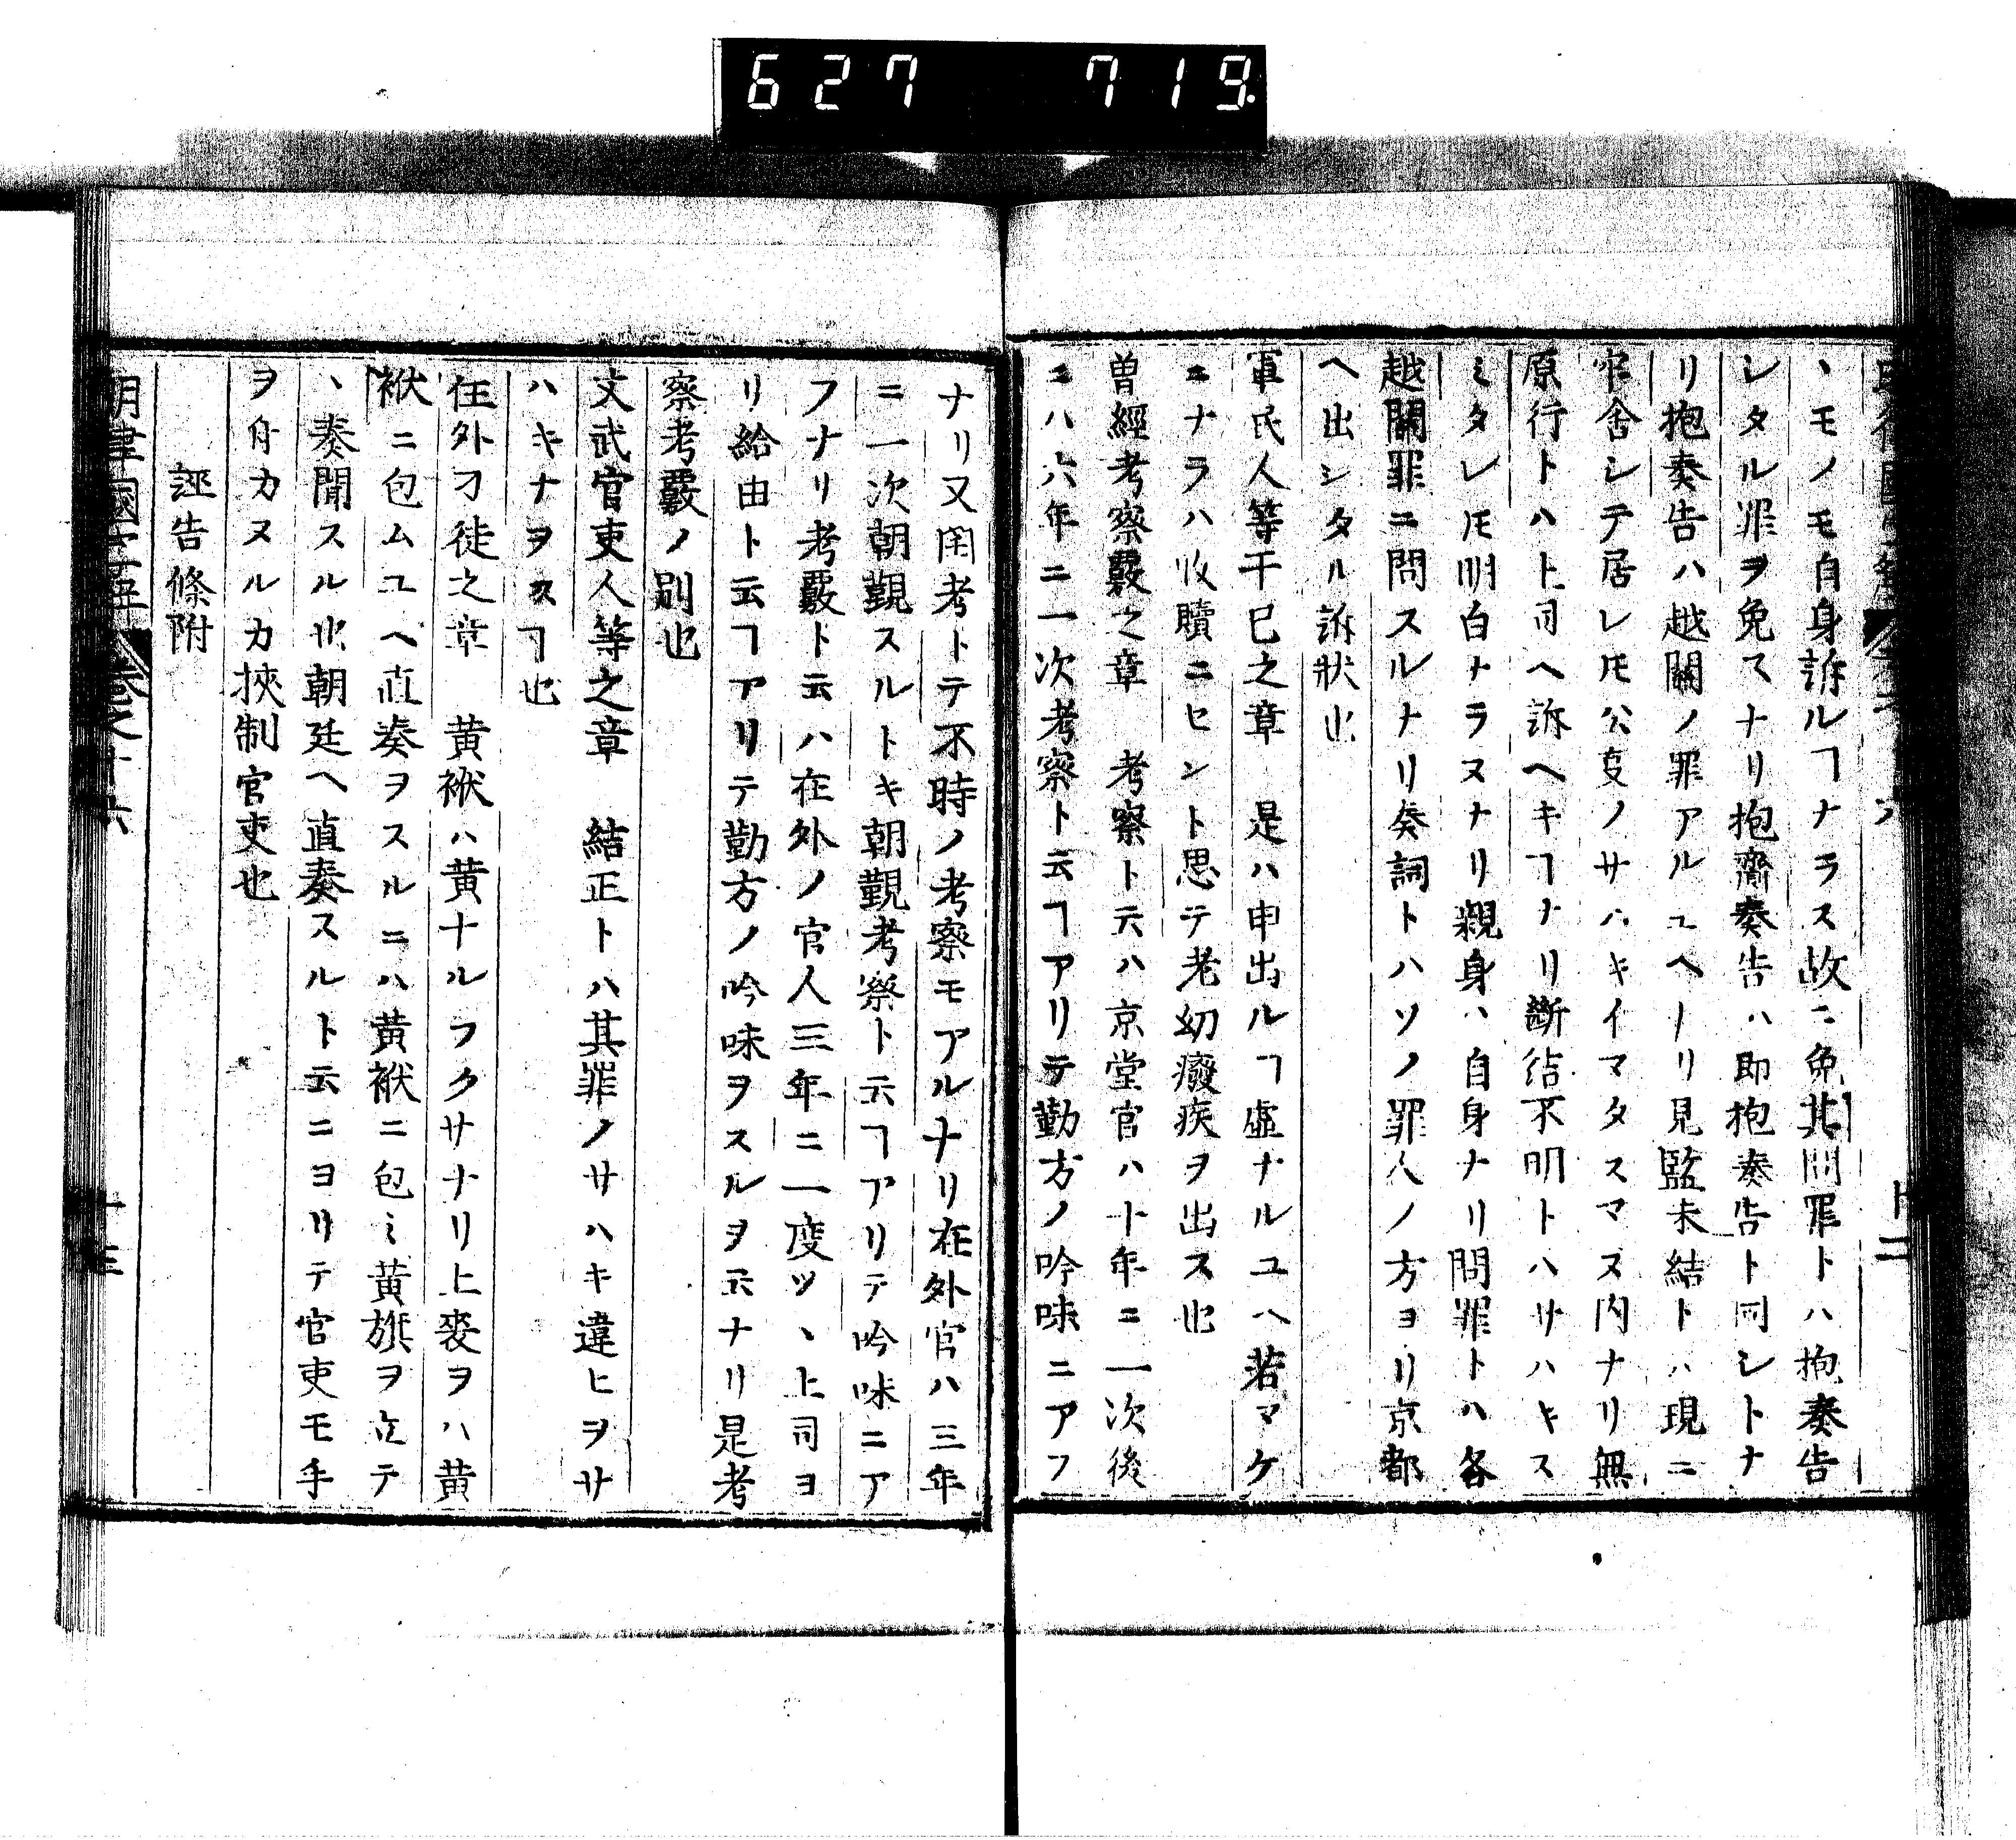 627 719
、モノモ自身訴ルヿナラス故ニ免其問罪トハ抱奏告
シタル罪ヲ免スナリ抱齎奏告ハ即抱奏告ト同シトナ
リ抱奏告ハ越關ノ罪アルユヘナリ見監未結トハ現ニ
牢舎シテ居レ𪜈公叓ノサハキイマタスマヌ内ナリ無
原行トハ上司ヘ訴ヘキヿナリ斷結不明トハサハキス
ミタレ𪜈明白ナラヌナリ親身ハ自身ナリ問罪トハ各
越關罪ニ問スルナリ奏詞トハソノ罪人ノ方ヨリ京都
ヘ出シタル訴狀也
軍民人等干已之章 是ハ申出ルヿ虚ナルユヘ若マケ
ニナラハ收贖ニセント思テ老幼癈疾ヲ出ス也
曽經考察覈之章 考察ト云ハ京堂官ハ十年ニ一次後
ニハ六年ニ一次考察ト云ヿアリテ勤方ノ吟味ニアフ
ナリ又閑考トテ不時ノ考察モアルナリ在外官ハ三年
ニ一次朝覲スルトキ朝覲考察ト云ヿアリテ吟味ニア
フナリ考覈ト云ハ在外ノ官人三年ニ一度ツ、上司ヨ
リ給由ト云ヿアリテ勤方ノ吟味ヲスルヲ云ナリ是考
察考覈ノ別也
文武官吏人等之章 結正トハ其罪ノサハキ違ヒヲサ
ハキナヲスヿ也
在外刁徒之章 黄袱ハ黄ナルフクサナリ上裘ヲハ黄
袱ニ包ムユヘ直奏ヲスルニハ黄袱ニ包ミ黄旗ヲ立テ
、奏聞スル也朝廷ヘ直奏スルト云ニヨリテ官吏モ手
ヲ付カヌルカ挾制官吏也
誣告條附
明律國字解 卷之十六 十三